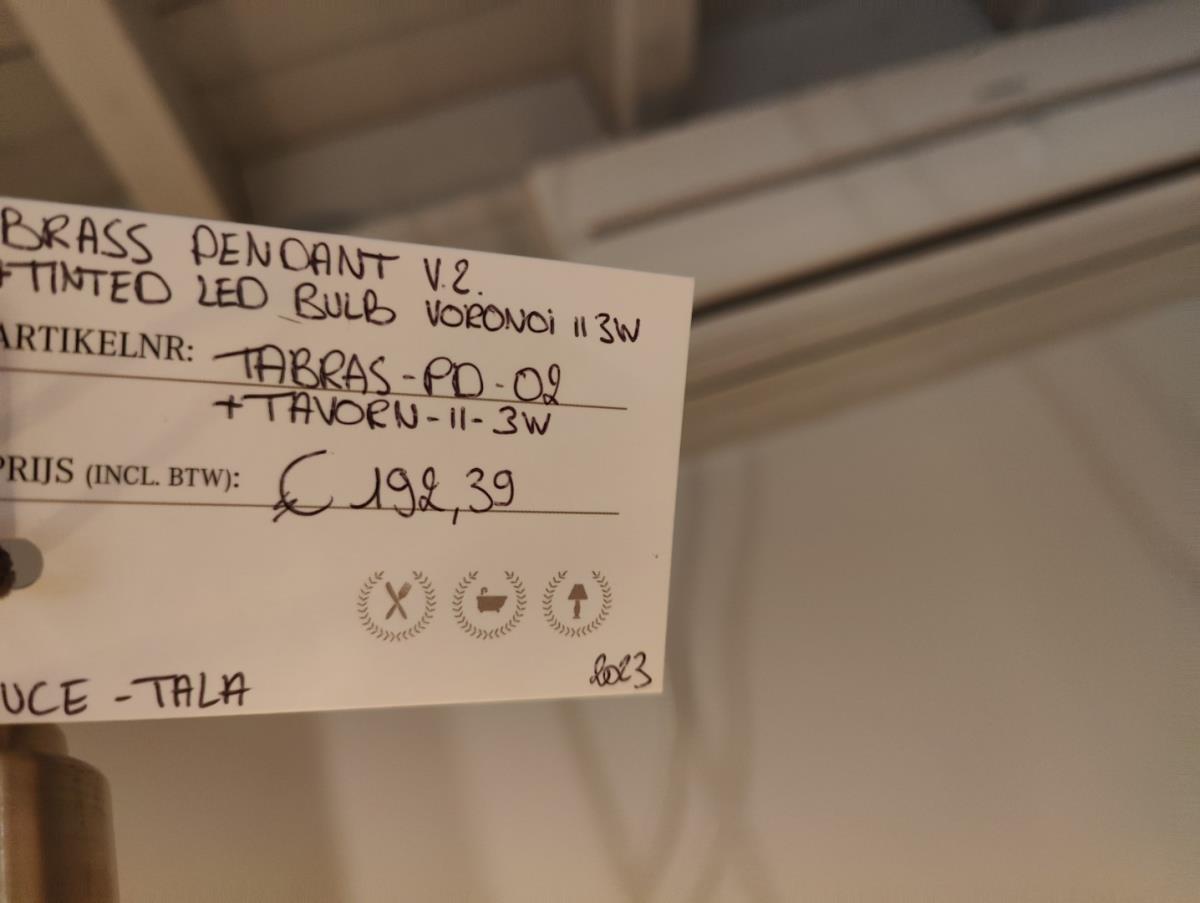 BRASS PENDANT V.2.
+TINTED LED BULB VORONOi II 3W
ARTIKELNR: TABRAS-PD-02
+TAVORN-II-3W
PRIJS (INCL. BTW): € 192,39
2023
UCE - TALA